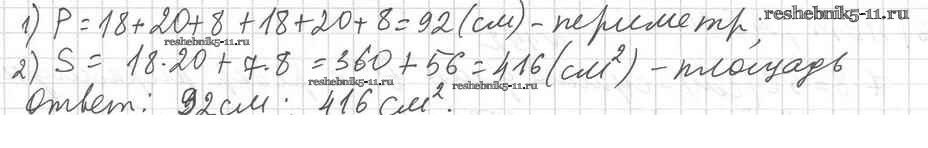 1) P = 18 + 20 + 8 + 18 + 20 + 8 = 92 (см) - периметр, reshebnik5-11.ru
reshebnik5-11.ru
2) S = 18 · 20 + 7 · 8 = 360 + 56 = 416 (см²) - площадь
reshebnik5-11.ru reshebnik5-11.ru
Ответ: 92 см; 416 см².